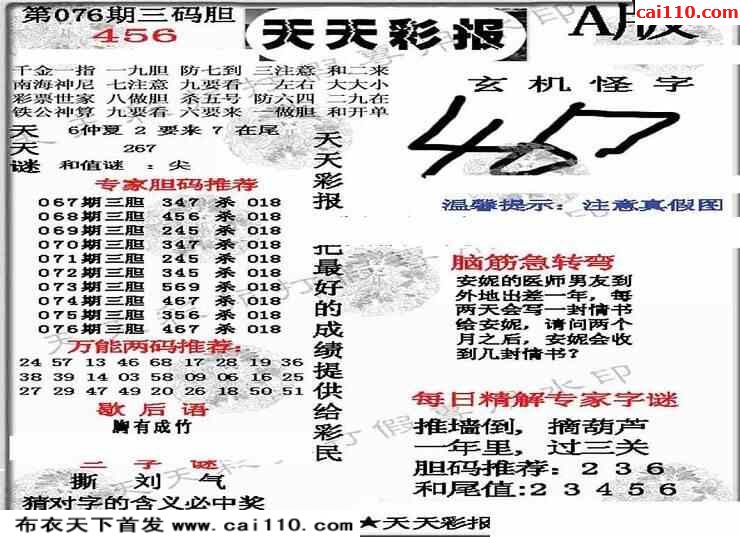 第076期三码胆
456
天天彩报
A版
cai110.com
千金一指 一九胆 防七到 三注意 和二来
南海神尼 七注意 九要看 左右 大大小
彩票世家 八做胆 杀五号 防六四 二九在
铁公神算 九要看 六要来 一做胆 和开单
天天谜
6仲夏 2 要来 7 在尾
267
和值谜 :尖
专家胆码推荐
067期三胆 347 杀 018
068期三胆 456 杀 018
069期三胆 245 杀 018
070期三胆 347 杀 018
071期三胆 245 杀 018
072期三胆 345 杀 018
073期三胆 569 杀 018
074期三胆 467 杀 018
075期三胆 356 杀 018
076期三胆 467 杀 018
万能两码推荐:
24 57 13 46 68 17 28 19 36
38 39 14 03 58 09 06 16 25
27 29 47 49 20 26 18 50 51
歇后语
胸有成竹
二子谜
撕 刘 气
猜对字的含义必中奖
天天彩报
把最好的成绩提供给彩民
玄机怪字
467
温馨提示:注意真假图
脑筋急转弯
安妮的医师男友到
外地出差一年,每
两天会写一封情书
给安妮,请问两个
月之后,安妮会收
到几封情书?
每日精解专家字谜
推墙倒,摘葫芦
一年里,过三关
胆码推荐:236
和尾值:23456
布衣天下首发 www.cai110.com
★天天彩报